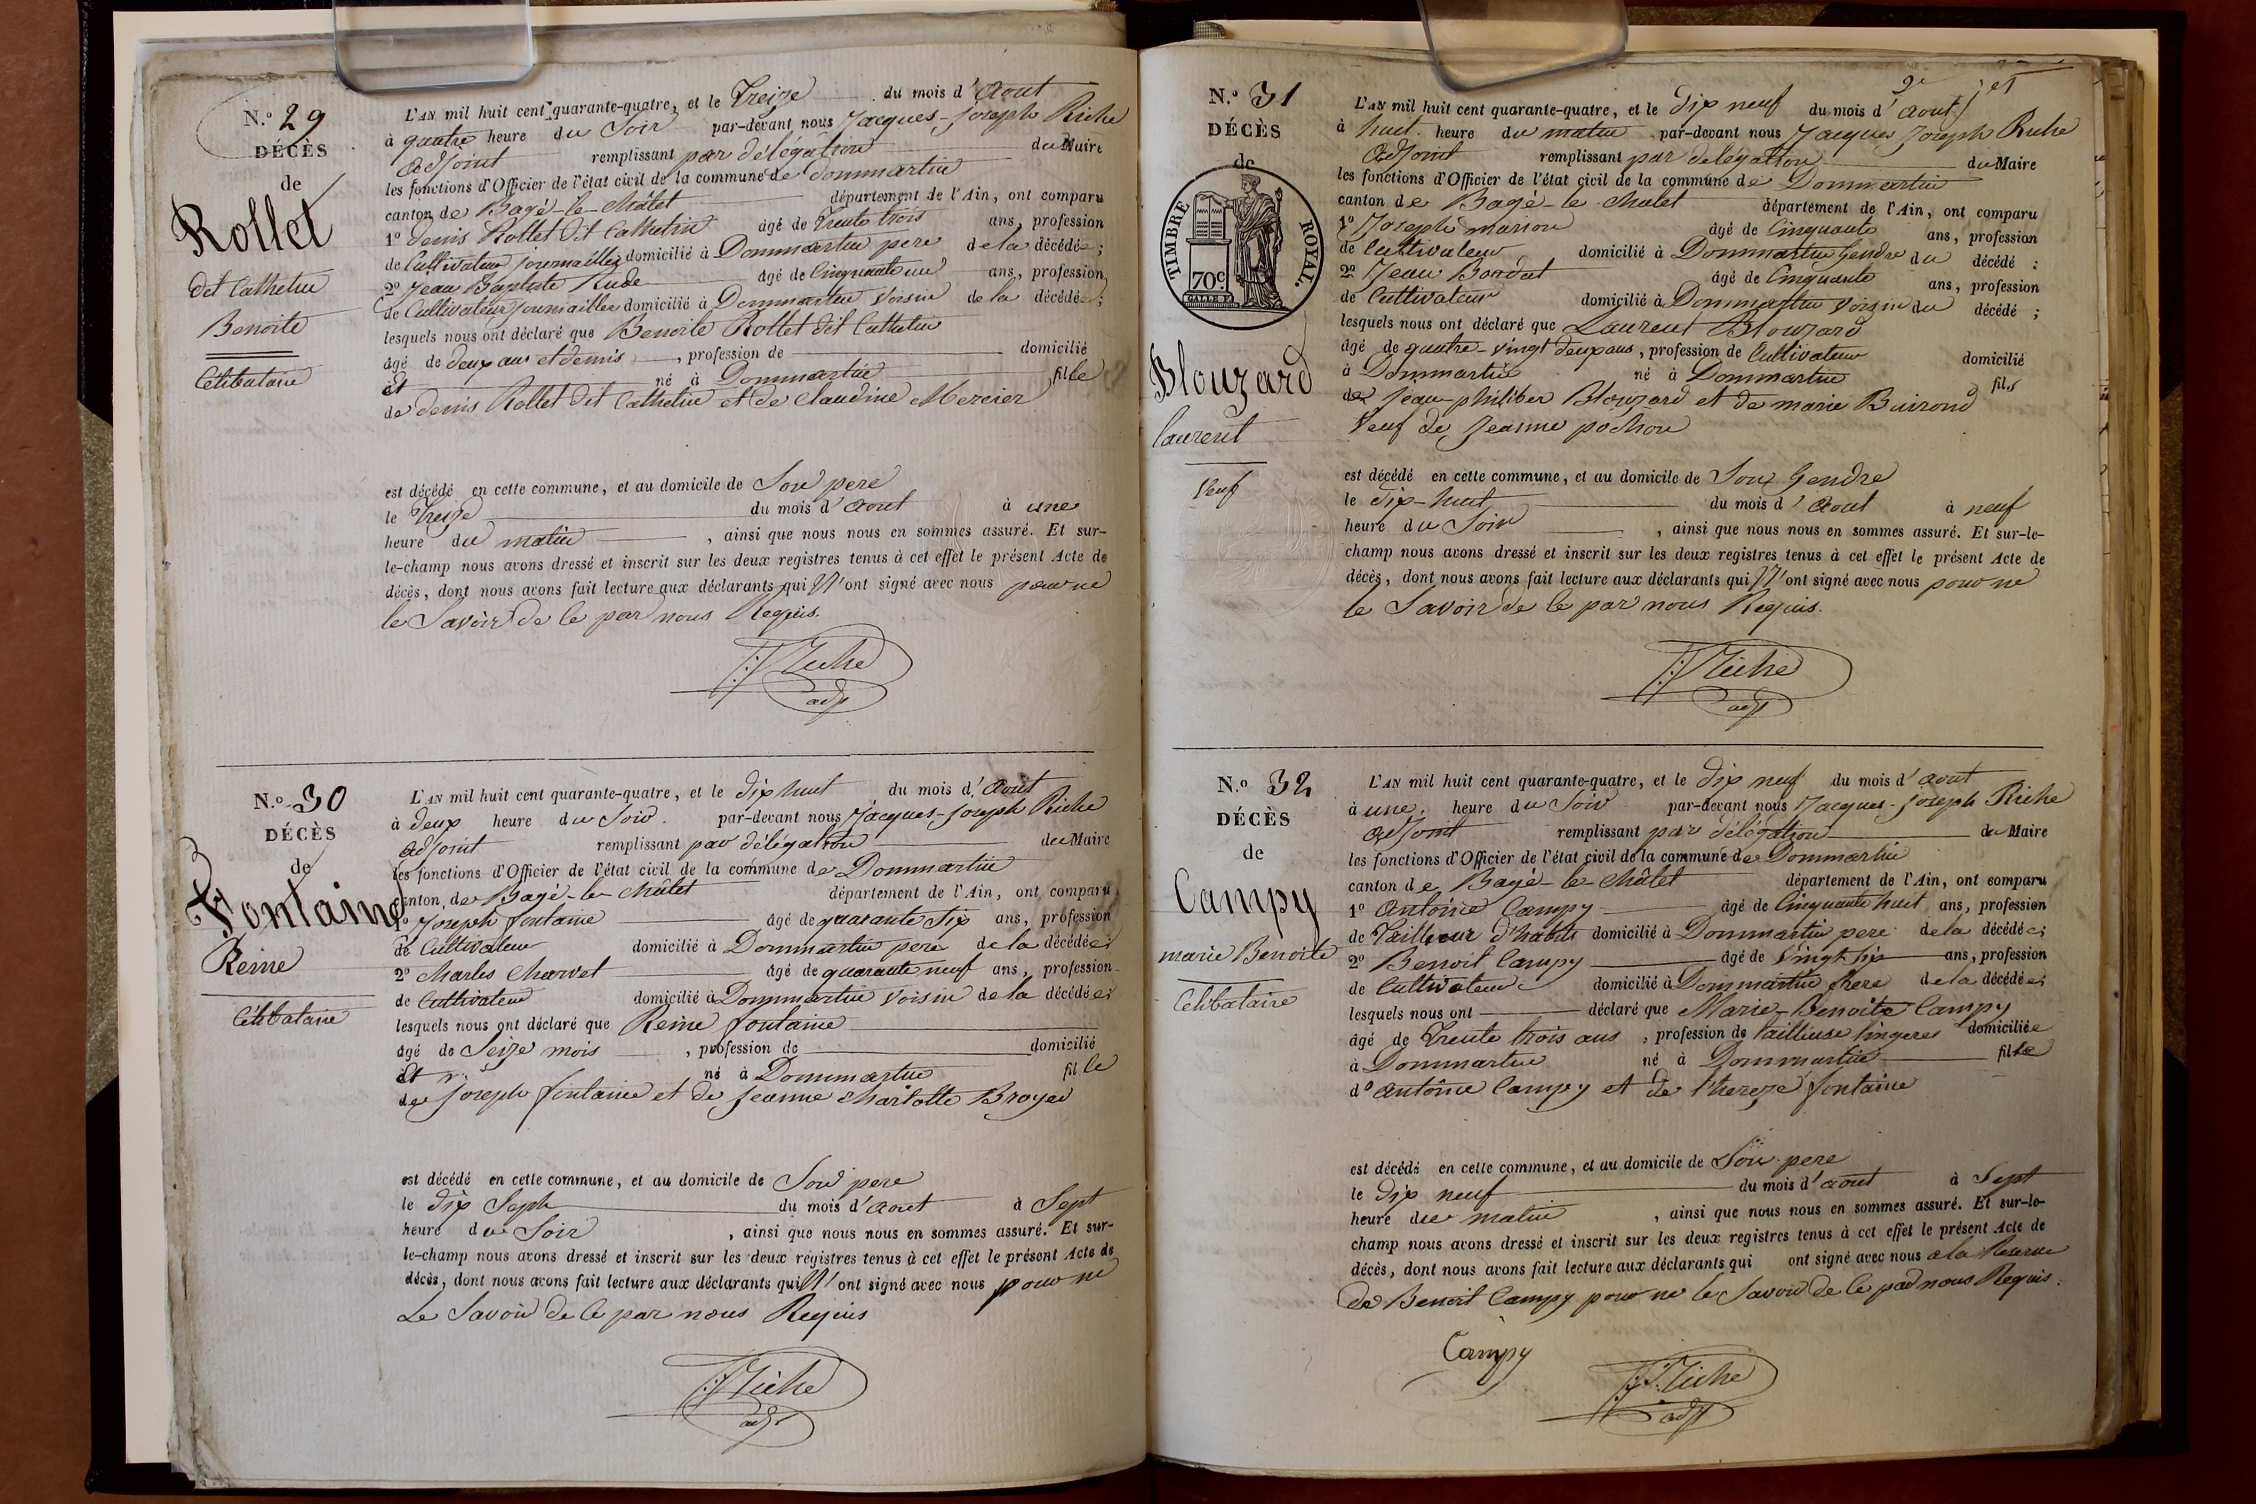 N.º 29
DÉCÈS
de
Rollet
dit Cathelin
Benoite
Célibataire
L'AN mil huit cent quarante-quatre, et le Treize du mois d'Aout
à quatre heure du Soir par-devant nous Jacques-Joseph Riche
Adjoint remplissant par délégation du Maire
les fonctions d'Officier de l'état civil de la commune de Dommartin
canton de Bagé-le-Châtel département de l'Ain, ont comparu
1º denis Rollet dit Cathelin âgé de Trente trois ans, profession
de Cultivateur journaillier domicilié à Dommartin pere de la décédée ;
2º Jean Baptiste Rude âgé de Cinquante un ans, profession
de Cultivateur journaillier domicilié à Dommartin Voisin de la décédée ;
lesquels nous ont déclaré que Benoite Rollet dit Cathelin
âgé de deux ans et demis , profession de domicilié
et né à Dommartin fille
de denis Rollet dit Cathelin et de Claudine Mercier
est décédé en cette commune, et au domicile de Son pere
le Treize du mois d'Aout à une
heure du matin , ainsi que nous nous en sommes assuré. Et sur-
le-champ nous avons dressé et inscrit sur les deux registres tenus à cet effet le présent Acte de
décès, dont nous avons fait lecture aux déclarants qui N'ont signé avec nous pour ne
le Savoir de ce par nous Requis.
JJ Riche
adjt
N.º 30
DÉCÈS
de
Fontaine
Reine
Célibataire
L'AN mil huit cent quarante-quatre, et le dix huit du mois d'Aout
à deux heure du Soir par-devant nous Jacques-Joseph Riche
Adjoint remplissant par délégation du Maire
les fonctions d'Officier de l'état civil de la commune de Dommartin
canton de Bagé-le-Châtel département de l'Ain, ont comparu
1º Joseph fontaine âgé de quarante Six ans, profession
de Cultivateur domicilié à Dommartin pere de la décédée ;
2º Charles Charvet âgé de quarante neuf ans, profession
de Cultivateur domicilié à Dommartin Voisin de la décédée ;
lesquels nous ont déclaré que Reine fontaine
âgé de Seize mois , profession de domicilié
et né à Dommartin fille
de Joseph fontaine et de Jeanne Charlotte Broyer
est décédé en cette commune, et au domicile de Son pere
le dix Sept du mois d'Aout à Sept
heure du Soir , ainsi que nous nous en sommes assuré. Et sur-
le-champ nous avons dressé et inscrit sur les deux registres tenus à cet effet le présent Acte de
décès, dont nous avons fait lecture aux déclarants qui N'ont signé avec nous pour ne
Le Savoir de ce par nous Requis
JJ Riche
adjt
N.º 31
DÉCÈS
de
TIMBRE ROYAL.
70c
Blouzard
Laurent
Veuf
L'AN mil huit cent quarante-quatre, et le dix neuf du mois d'Aout
à huit heure du matin par-devant nous Jacques Joseph Riche
Adjoint remplissant par delégation du Maire
les fonctions d'Officier de l'état civil de la commune de Dommartin
canton de Bagé-le-Chatel département de l'Ain, ont comparu
1º Joseph marion âgé de Cinquante ans, profession
de Cultivateur domicilié à Dommartin Gendre du décédé ;
2º Jean Bondat âgé de Cinquante ans, profession
de Cultivateur domicilié à Dommartin Voisin du décédé ;
lesquels nous ont déclaré que Laurent Blouzard
âgé de quatre-vingt deux ans, profession de Cultivateur domicilié
à Dommartin né à Dommartin fils
de Jean-philiber Blouzard et de marie Buirond
Veuf de Jeanne pochon
est décédé en cette commune, et au domicile de Son Gendre
le dix-huit du mois d'Aout à neuf
heure du Soir , ainsi que nous nous en sommes assuré. Et sur-le-
champ nous avons dressé et inscrit sur les deux registres tenus à cet effet le présent Acte de
décès, dont nous avons fait lecture aux déclarants qui N'ont signé avec nous pour ne
le Savoir de ce par nous Requis.
JJ Riche
adjt
N.º 32
DÉCÈS
de
Campy
marie Benoite
Célibataire
L'AN mil huit cent quarante-quatre, et le dix neuf du mois d'Aout
à une heure du Soir par-devant nous Jacques-Joseph Riche
Adjoint remplissant par délégation du Maire
les fonctions d'Officier de l'état civil de la commune de Dommartin
canton de Bagé-le-Châtel département de l'Ain, ont comparu
1º Antoine Campy âgé de Cinquante huit ans, profession
de Tailleur d'habits domicilié à Dommartin pere de la décédée ;
2º Benoit Campy âgé de Vingt Six ans, profession
de Cultivateur domicilié à Dommartin frere de la décédée ;
lesquels nous ont déclaré que Marie-Benoite Campy
âgé de Trente trois ans , profession de tailleuse lingere domiciliée
à Dommartin né à Dommartin fille
d'Antoine Campy et de thereze fontaine
est décédé en cette commune, et au domicile de Son pere
le dix neuf du mois d'Aout à Sept
heure du matin , ainsi que nous nous en sommes assuré. Et sur-le-
champ nous avons dressé et inscrit sur les deux registres tenus à cet effet le présent Acte de
décès, dont nous avons fait lecture aux déclarants qui ont signé avec nous a la Reserve
de Benoit Campy pour ne le Savoir de ce par nous Requis.
Campy
JJ Riche
adjt